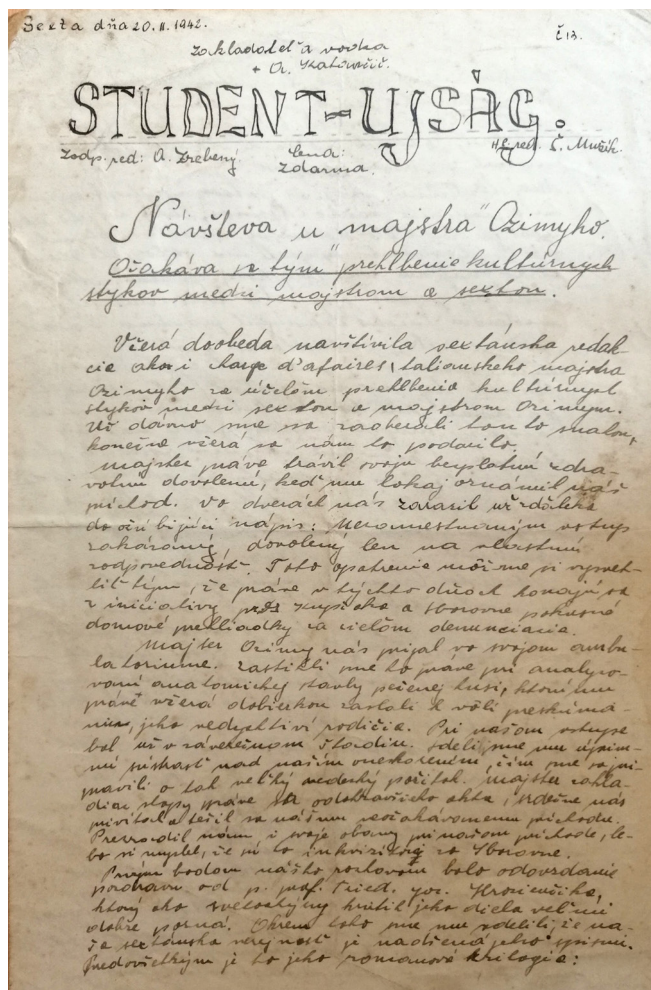 Sexta dňa 20. II. 1942.
č 13.
Zakladateľ a vodca
+ A.
STUDENT-UJSÁG.
Zodp. red: A. Zrebený.
Cena:
Zdarma.
Hl. red. Š. Mužík.
Návšteva u majstra Ozimyho.
Očakáva sa tým prehlbenie kultúrnych
stykov medzi majstrom a sextou.
Včerá doobeda navštívila sextánska redak-
cia ako i d'afaires talianskeho majstra
Ozimyho za účelom prehlbenia kultúrnych
stykov medzi sextou a majstrom Ozimym.
Už dávno sme sa zaoberali touto snahou,
konečne včerá sa nám to podarilo.
Majster práve trávil svoju bezplatnú zdra-
votnú dovolenú, keď mu lokaj oznámil náš
príchod. Vo dverách nás zarazil už zďaleka
do očú bijúci nápis: Nezamestnaným vstup
zakázaný, dovolený len na vlastnú
zodpovednosť. Toto opatrenie môžme si vysvet-
liť tým, že práve v týchto dňoch konajú sa
z iniciatívy a sborovne
domové prehliadky za cieľom denunciacie.
Majster Ozimy nás prijal vo svojom ambu-
latoriume. Zastihli sme ho práve pri analyzo-
vaní anatomickej stavby pečenej husi, ktorú mu
práve včerá dobierkou zaslali k vôli preskúma-
niu, jeho vedychtiví rodičia. Pri našom vstupe
bol už v záverečnom štadiu. Sdelili sme mu úprim-
nú sústrasť nad naším oneskorením, čím sme sa pri-
pravili o tak veľký vedecký pôžitok. Majster
stopy práve odohravšieho aktu, srdečne nás
privítal a tešil sa nášmu neočakávanému príchodu.
Prezradil nám i svoje obavy pri našom príchode, le-
bo si myslel, že sú to zo Sborovne.
Prvým bodom nášho bolo odovzdanie
pozdravu od p. prof.
ktorý ako jeho diela veľmi
dobre pozná. Okrem toho sme mu zdelili, že na-
ša sextánska verejnosť je nadšená jeho spismi.
Predovšetkým je to jeho romanová trilogia: